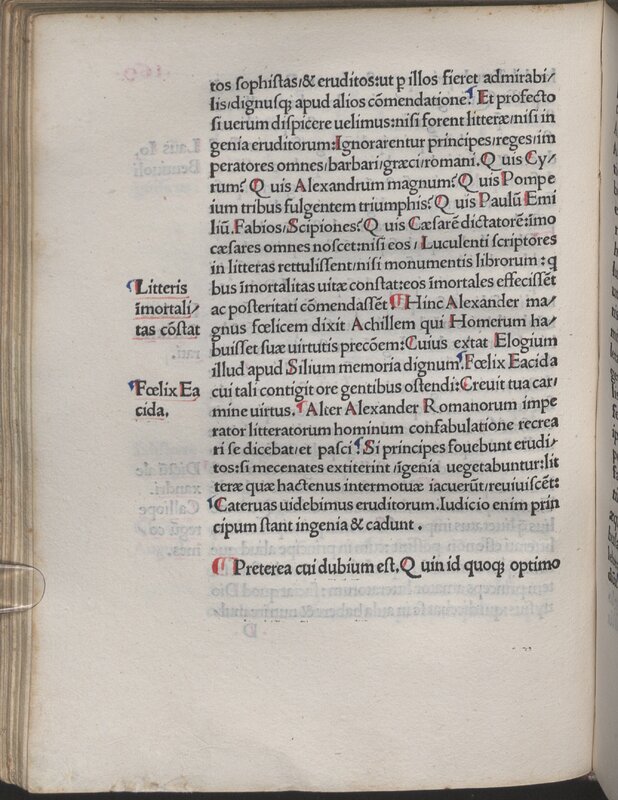 tos sophistas/& eruditos:ut p illos fieret admirabi/
lis/dignusq; apud alios cōmendatione. Et profecto
si uerum dispicere uelimus:nisi forent litteræ/nisi in
genia eruditorum:Ignorarentur principes/reges/im
peratores omnes/barbari/græci/romani. Q uis Cy/
rum? Q uis Alexandrum magnum? Q uis Pompe
ium tribus fulgentem triumphis? Q uis Paulū Emi
liū. Fabios/Scipiones? Q uis Cæsarē dictatorē:imo
cæsares omnes noscet:nisi eos / Luculenti scriptores
in litteras rettulissent/nisi monumentis librorum: q
bus īmortalitas uitæ constat:eos īmortales effecissēt
ac posteritati cōmendassēt. Hinc Alexander ma/
gnus fœlicem dixit Achillem qui Homerum ha/
buisset suæ uirtutis precōem:Cuius extat Elogium
illud apud Silium memoria dignum. Fœlix Eacida
cui tali contigit ore gentibus ostendi:Creuit tua car/
mine uirtus. Alter Alexander Romanorum impe
rator litteratorum hominum confabulatione recrea
ri se dicebat/et pasci. Si principes fouebunt erudi/
tos:si mecenates extiterint/īgenia uegetabuntur:lit
teræ quæ hactenus intermotuæ iacuerūt/reuiuiscēt:
Cateruas uidebimus eruditorum. Iudicio enim prin
cipum stant ingenia & cadunt.
Preterea cui dubium est. Q uin id quoq; optimo
Litteris
īmortali/
tas cōstat
Fœlix Ea
cida.